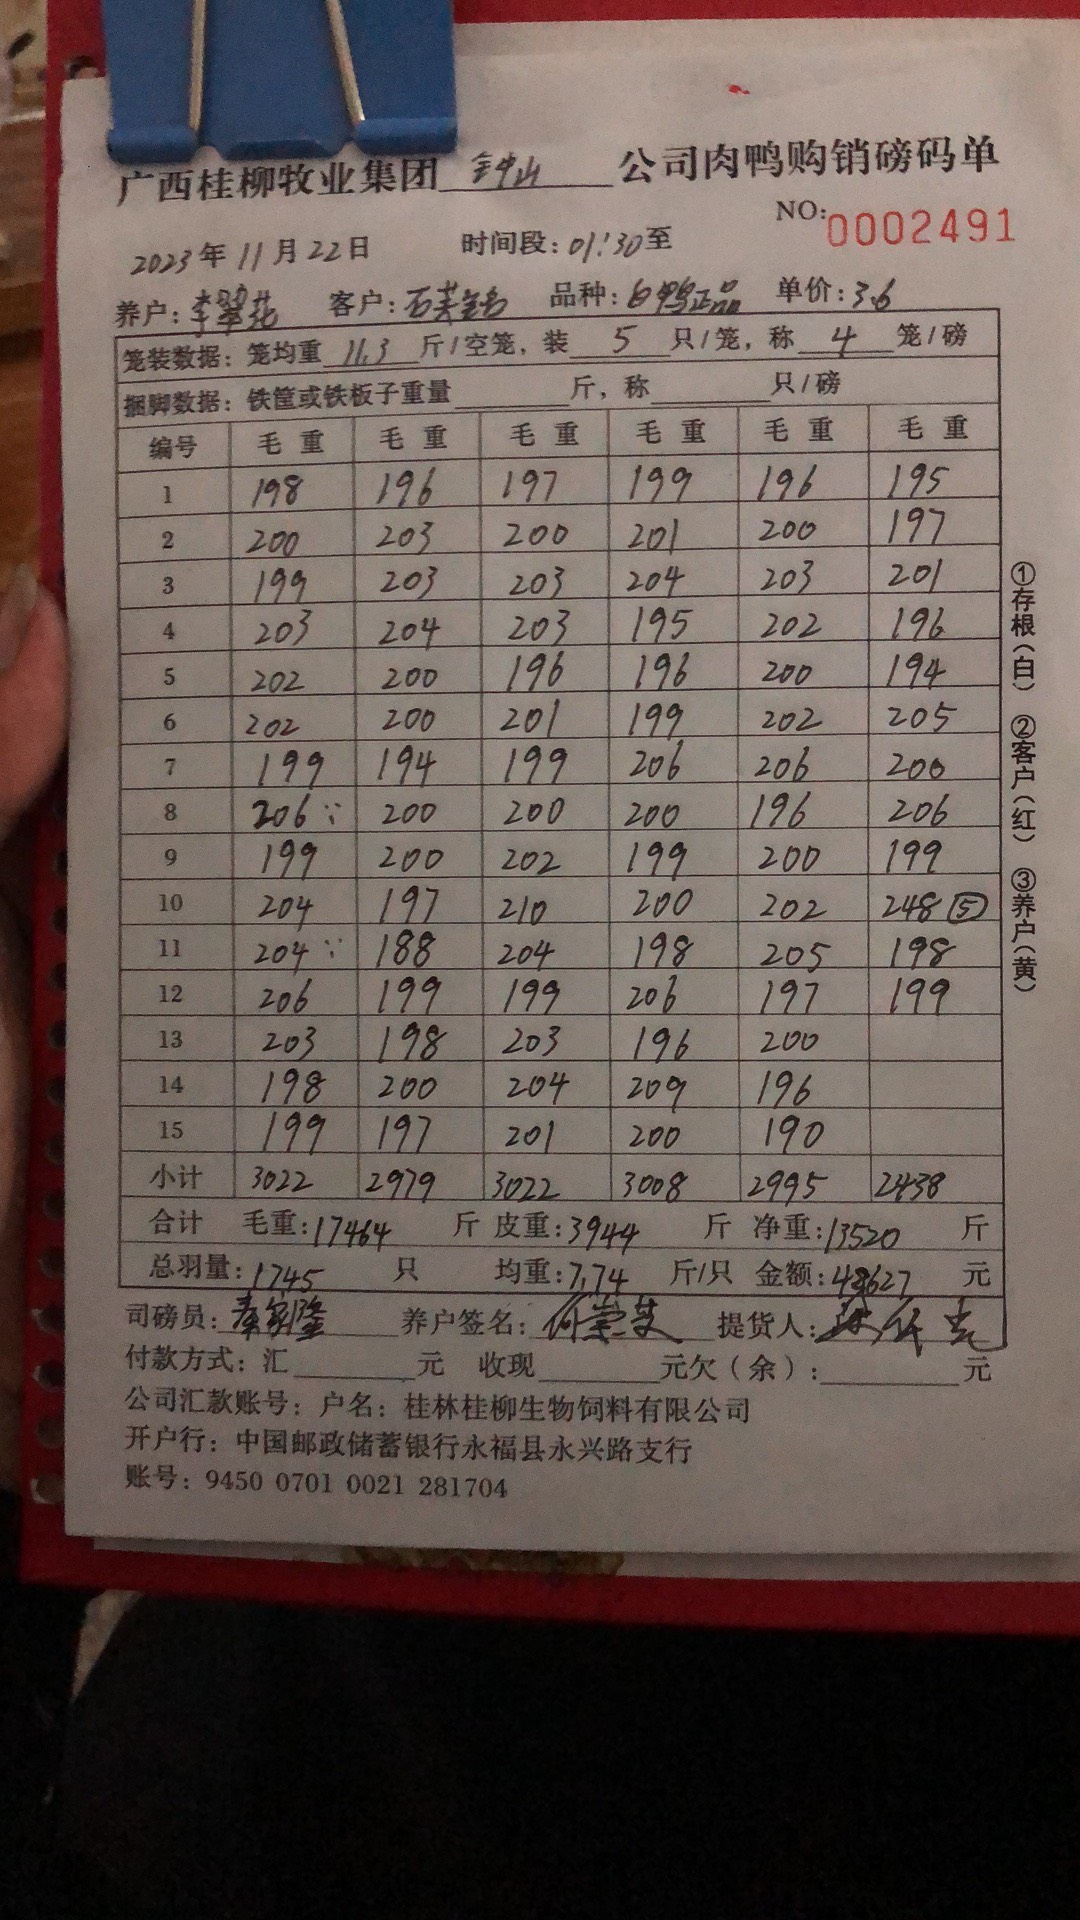 广西桂柳牧业集团 钟山 公司肉鸭购销磅码单
NO: 0002491
2023年11月22日 时间段: 01:30至
养户: 李翠花 客户: 石英 品种: 白鸭正品 单价: 3.6
笼装数据: 笼均重 11.3 斤/空笼, 装 5 只/笼, 称 4 笼/磅
捆脚数据: 铁筐或铁板子重量 斤, 称 只/磅
编号 毛重 毛重 毛重 毛重 毛重 毛重
1 198 196 197 199 196 195
2 200 203 200 201 200 197
3 199 203 203 204 203 201
4 203 204 203 195 202 196
5 202 200 196 196 200 194
6 202 200 201 199 202 205
7 199 194 199 206 206 200
8 206 200 200 200 196 206
9 199 200 202 199 200 199
10 204 197 210 200 202 248 ⑤
11 204 188 204 198 205 198
12 206 199 199 206 197 199
13 203 198 203 196 200
14 198 200 204 209 196
15 199 197 201 200 190
小计 3022 2979 3022 3008 2995 2438
合计 毛重: 17464 斤 皮重: 3944 斤 净重: 13520 斤
总羽量: 1745 只 均重: 7.74 斤/只 金额: 48627 元
司磅员: 秦家隆 养户签名: 何崇英 提货人:
付款方式: 汇 元 收现 元欠(余): 元
公司汇款账号: 户名: 桂林桂柳生物饲料有限公司
开户行: 中国邮政储蓄银行永福县永兴路支行
账号: 9450 0701 0021 281704
①存根(白) ②客户(红) ③养户(黄)